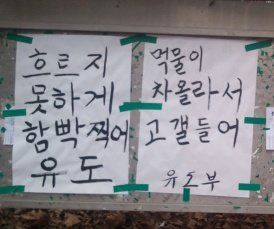 흐르지
못하게
함빡찍어
유도
먹물이
차올라서
고갤들어
유도부